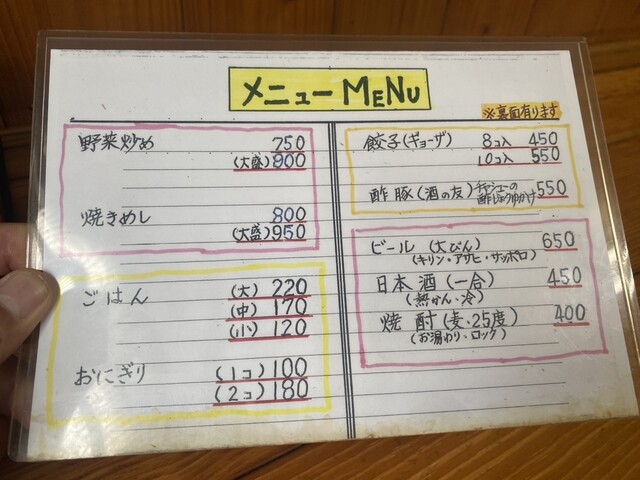 メニュー MENU
※裏面有ります
野菜炒め 750
(大盛) 900
焼きめし 800
(大盛) 950
ごはん (大) 220
(中) 170
(小) 120
おにぎり (1コ) 100
(2コ) 180
餃子(ギョーザ) 8コ入 450
10コ入 550
酢豚(酒の友) チャーシューの 550
酢じょうゆかけ
ビール (大びん) 650
(キリン・アサヒ・サッポロ)
日本酒(一合) 450
(熱かん、冷)
焼酎(麦、25度) 400
(お湯わり、ロック)